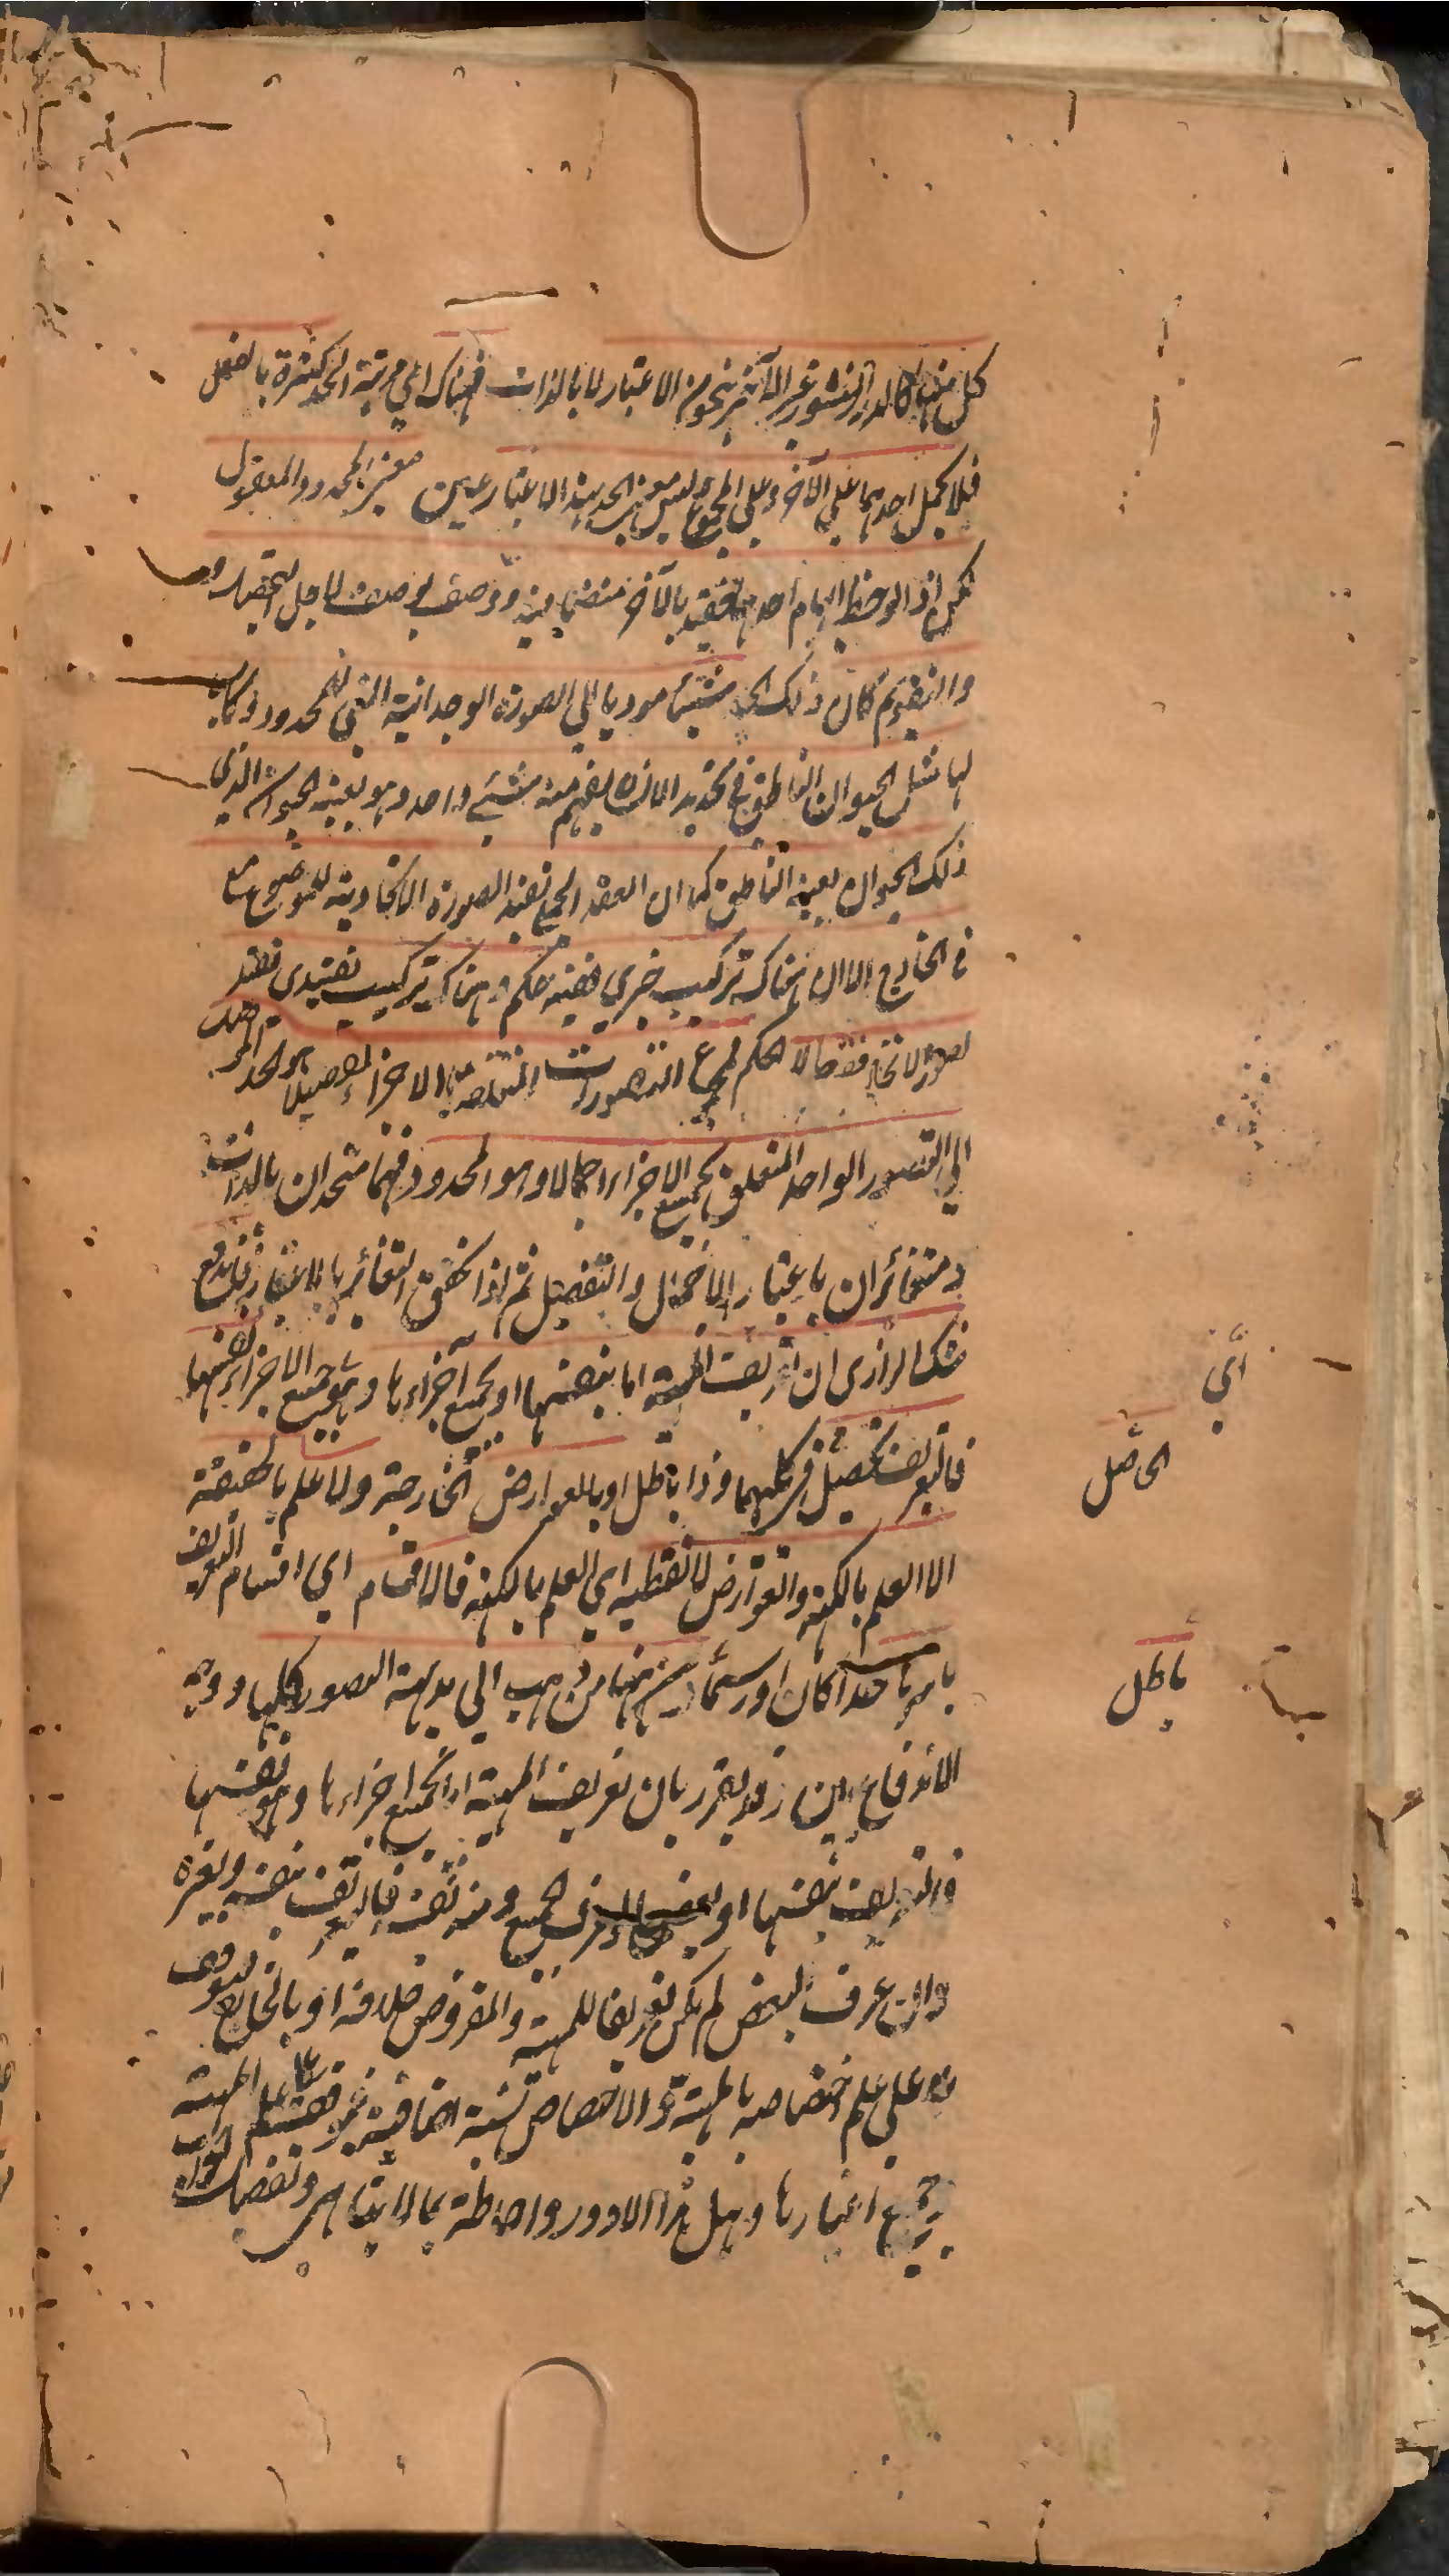 كل منها كالدرر المنثور غير الآخر بنحو من الاعتبار لا بالذات فهناك اي في مرتبة الحد كثرة بالفعل
فلا يحمل احدهما على الآخر ولا على المجموع ليس معنى الحد بهذا الاعتبار عين معنى المحدود المعقول
لكن اذا لوحظ ابهام احدهما فقيد بالآخر منضما فيه ووصف بوصفه لاجل التحصيل
والتقويم كان ذلك الحد شيئا موديا الى الصورة الوحدانية التي للمحدود وكاسبا
لها مثل الحيوان الناطق في تحديد الانسان يفهم منه شيء واحد وهو بعينه الحيوان الذي
ذلك الحيوان بعينه الناطق كما ان العقد الحملي يفيد الصورة الاتحادية للموضوع مع
في الخارج الا ان هناك تركيب خبري ففيه حكم وههنا تركيب تقييدي يفيد
تصور الاتحاد فقط لا الحكم فمجموع التصورات المتعلقة بالاجزاء تفصيلا هو الحد الموصل
الى التصور الواحد المتعلق بجميع الاجزاء اجمالا وهو المحدود فهما متحدان بالذات
ومتغائران باعتبار الاجمال والتفصيل ثم اذا تحقق التغائر بالاعتبار فاندفع
شك الرازى ان تعريف المهية اما بنفسها او بجميع اجزاءها وهو جميع الاجزاء نفسها
فالتعريف تحصيل الحاصل وذا باطل او بالعوارض الخارجة ولا علم بالحقيقة
الا العلم بالكنه والعوارض لا تعطيه اي العلم بالكنه فالاقسام اي اقسام التعريف
باسرها حدا كان او رسما ومن ههنا من ذهب الى بداهة التصور كلها ووجه
الاندفاع بين وقد يقرر بان تعريف المهية اما بجميع اجزاءها وهو نفسها
فالتعريف بنفسها او ببعضها والمعرف للجميع ومنه نفسه فالتعريف بنفسه وبغيره
وان عرف البعض لم يكن تعريفا للمهية والمفروض خلافه او بالخارج فيتوقف
هو على علم اختصاصه بالمهية والاختصاص نسبة اضافية فتوقف على علم المهية
جميع اغيارها وهل هذا الا دور واحاطة بما لا يتناهى وتفصيل الجواب
أي
الحاصل
باطل